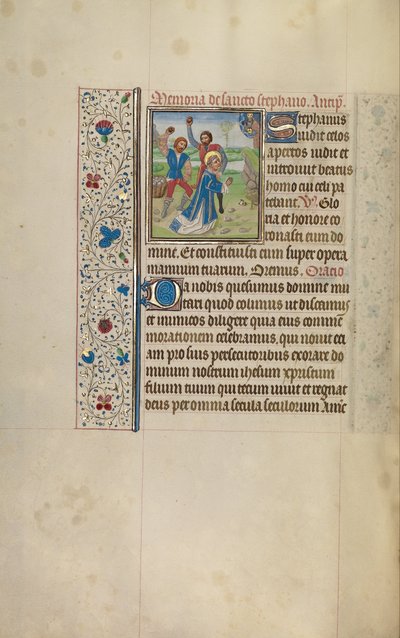 Memoria de sancto stephano. Antiph̄.
Stephanus
vidit celos
apertos vidit et
introivit beatus
homo cui celi pa
tebant. V̷. Glo
ria et honore co
ronasti eum do
mine. Et constituisti eum super opera
manuum tuarum. Oremus. Oracio
Da nobis quesumus domine imi
tari quod colimus ut discamus
et inimicos diligere quia eius comme
morationem celebramus, qui novit eci
am pro suis persecutoribus exorare do
minum nostrum ihesum xpristum
filium tuum qui tecum vivit et regnat
deus per omnia secula seculorum Amē